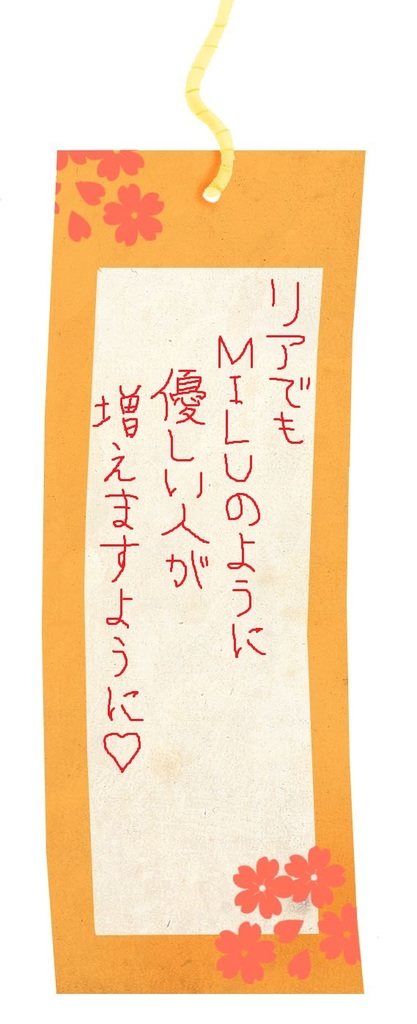 リアでも
MILUのように
優しい人が
増えますように♡